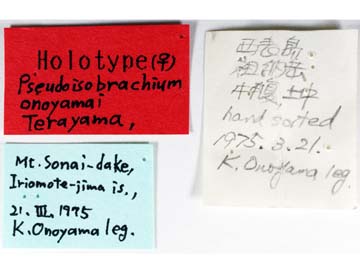 Holotype(♀)
Pseudoisobrachium
onoyamai
Terayama,
Mt. Sonai-dake,
Iriomote-jima is.,
21. III. 1975
K. Onoyama leg.
西表島
祖納岳
hand sorted
1975. 3. 21.
K. Onoyama leg.